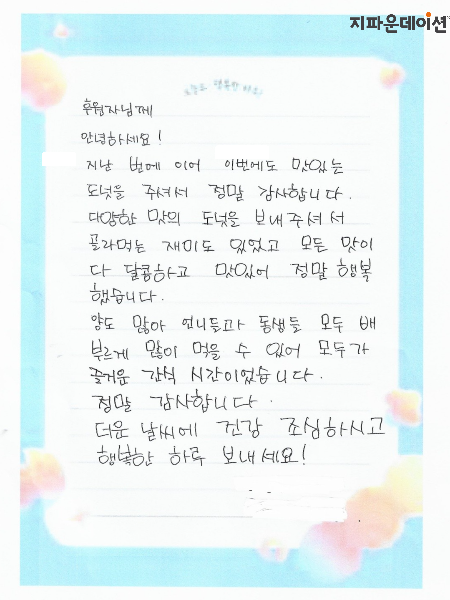 지파운데이션
오늘도 행복한 하루!
후원자님께
안녕하세요!
지난 번에 이어 이번에도 맛있는
도넛을 주셔서 정말 감사합니다.
다양한 맛의 도넛을 보내주셔서
골라먹는 재미도 있었고 모든 맛이
다 달콤하고 맛있어 정말 행복
했습니다.
양도 많아 언니들과 동생들 모두 배
부르게 많이 먹을 수 있어 모두가
즐거운 간식 시간이었습니다.
정말 감사합니다.
더운 날씨에 건강 조심하시고
행복한 하루 보내세요!